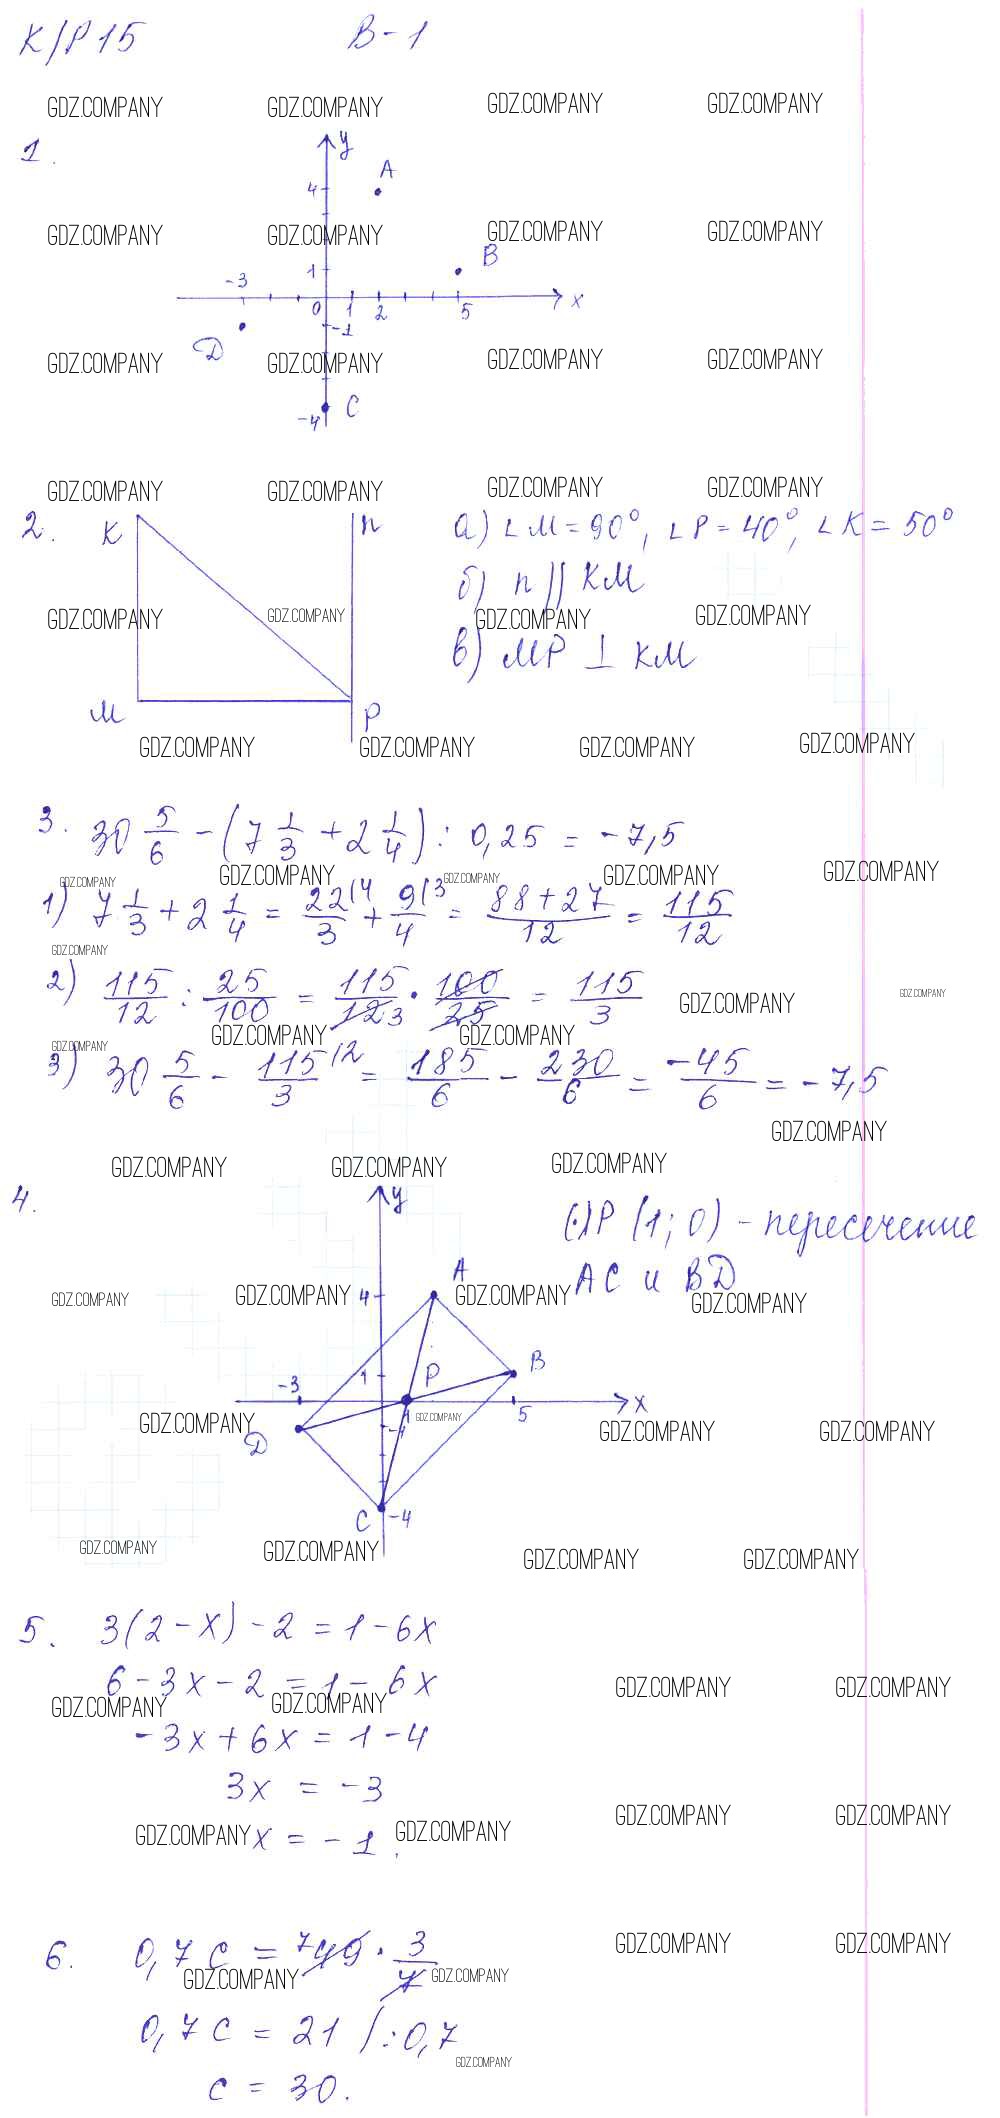 К/Р 15 В-1
GDZ.COMPANY GDZ.COMPANY GDZ.COMPANY GDZ.COMPANY
1. y
A
4
GDZ.COMPANY GDZ.COMPANY GDZ.COMPANY GDZ.COMPANY
B
-3 1
0 1 2 5 x
-1
D
GDZ.COMPANY GDZ.COMPANY GDZ.COMPANY GDZ.COMPANY
-4 C
GDZ.COMPANY GDZ.COMPANY GDZ.COMPANY GDZ.COMPANY
2. K n а) ∠M = 90°, ∠P = 40°, ∠K = 50°
б) n || KM
GDZ.COMPANY GDZ.COMPANY GDZ.COMPANY GDZ.COMPANY
в) MP ⊥ KM
M P
GDZ.COMPANY GDZ.COMPANY GDZ.COMPANY GDZ.COMPANY
3. 30 5/6 - (7 1/3 + 2 1/4) : 0,25 = -7,5
GDZ.COMPANY GDZ.COMPANY GDZ.COMPANY GDZ.COMPANY GDZ.COMPANY
1) 7 1/3 + 2 1/4 = 22\4/3 + 9\3/4 = 88+27/12 = 115/12
GDZ.COMPANY
2) 115/12 : 25/100 = 115/12 3 · 100/25 = 115/3
GDZ.COMPANY GDZ.COMPANY
GDZ.COMPANY GDZ.COMPANY GDZ.COMPANY
3) 30 5/6 - 115\2/3 = 185/6 - 230/6 = -45/6 = -7,5
GDZ.COMPANY
GDZ.COMPANY GDZ.COMPANY GDZ.COMPANY
4. y (·)P (1; 0) - пересечение
A AC и BD
GDZ.COMPANY GDZ.COMPANY 4 GDZ.COMPANY GDZ.COMPANY
-3 1 P B
1 5 x
GDZ.COMPANY D -1 GDZ.COMPANY GDZ.COMPANY GDZ.COMPANY
C -4
GDZ.COMPANY GDZ.COMPANY GDZ.COMPANY GDZ.COMPANY
5. 3(2-x)-2 = 1-6x
6-3x-2 = 1-6x
GDZ.COMPANY GDZ.COMPANY GDZ.COMPANY GDZ.COMPANY
-3x+6x = 1-4
3x = -3
GDZ.COMPANY GDZ.COMPANY
GDZ.COMPANY x = -1. GDZ.COMPANY
GDZ.COMPANY GDZ.COMPANY
6. 0,7 c = 7 49 · 3/7
GDZ.COMPANY GDZ.COMPANY
0,7 c = 21 /:0,7
GDZ.COMPANY
c = 30.